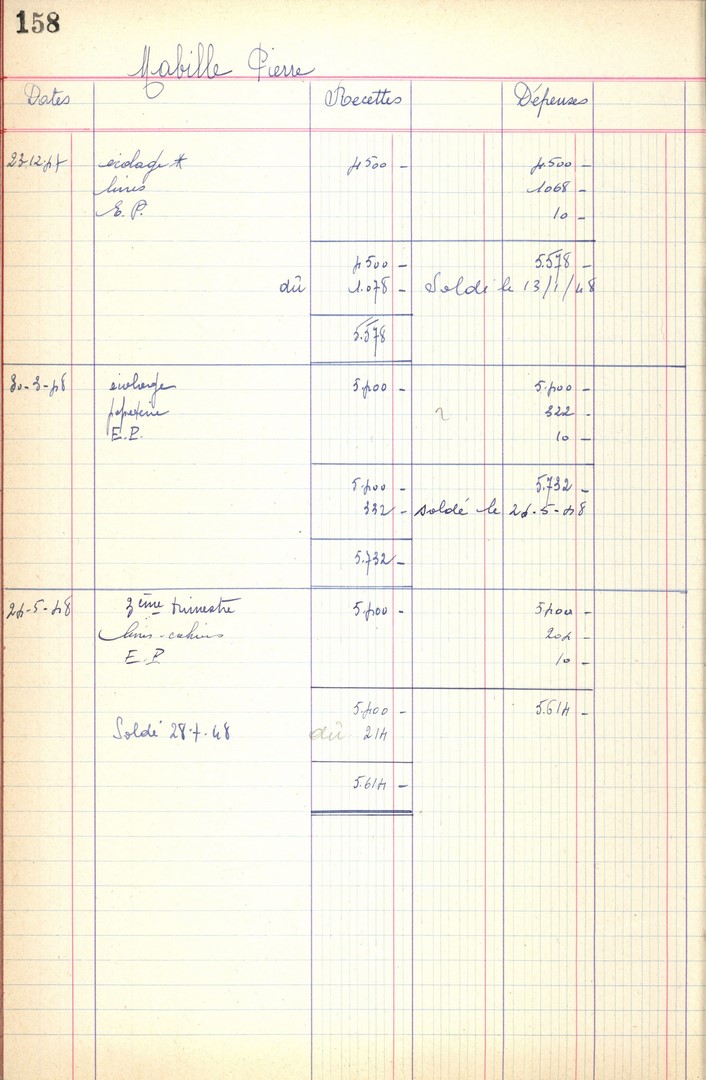 158
Mabille Pierre
Dates Recettes Dépenses
23.12.47 écolage * 4500 - 4.500 -
livres 1068 -
E.P. 10 -
4500 - 5.578 -
dû 1.078 - Soldé le 13/1/48
5.578
30-3-48 écolage 5.400 - 5.400 -
papeterie 322 -
E.P. 10 -
5.400 - 5.732 -
332 - soldé le 24-5-48
5.732 -
24-5-48 3ème trimestre 5.400 - 5.400 -
livres-cahiers 204 -
E.P 10 -
5.400 - 5.614 -
Soldé 28.7.48 dû 214
5.614 -